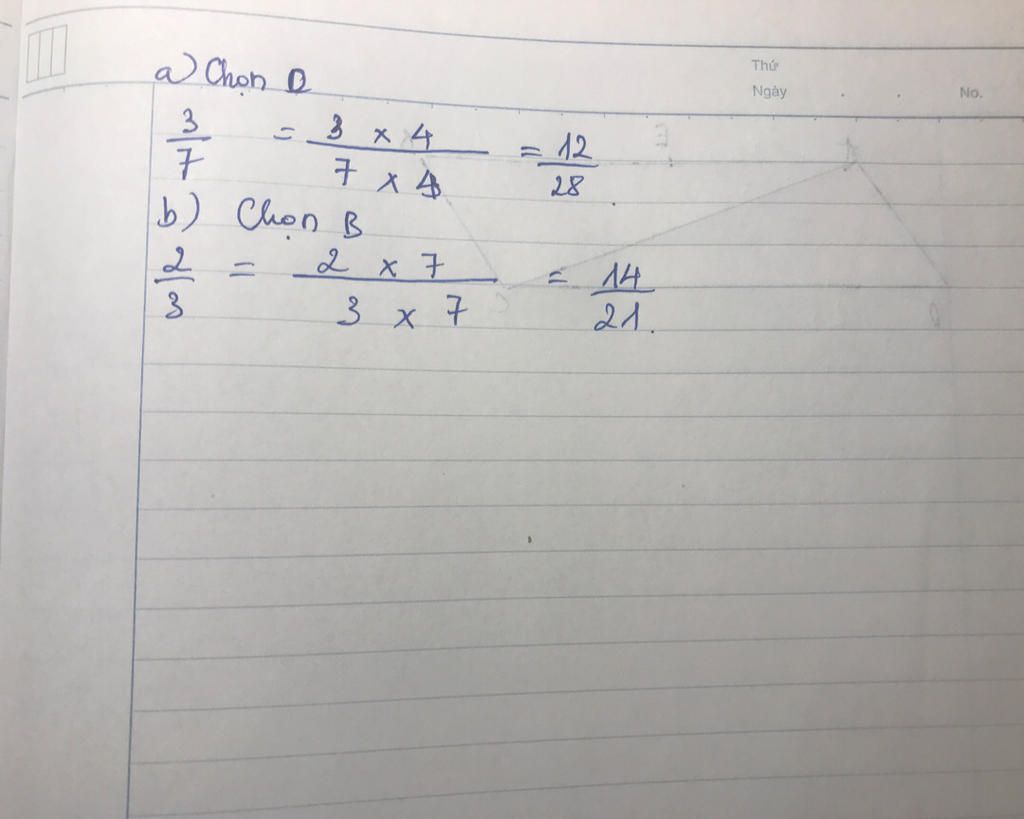 Thứ
Ngày . . No.
a) Chọn D
3/7 = (3 x 4)/(7 x 4) = 12/28.
b) Chọn B
2/3 = (2 x 7)/(3 x 7) = 14/21.